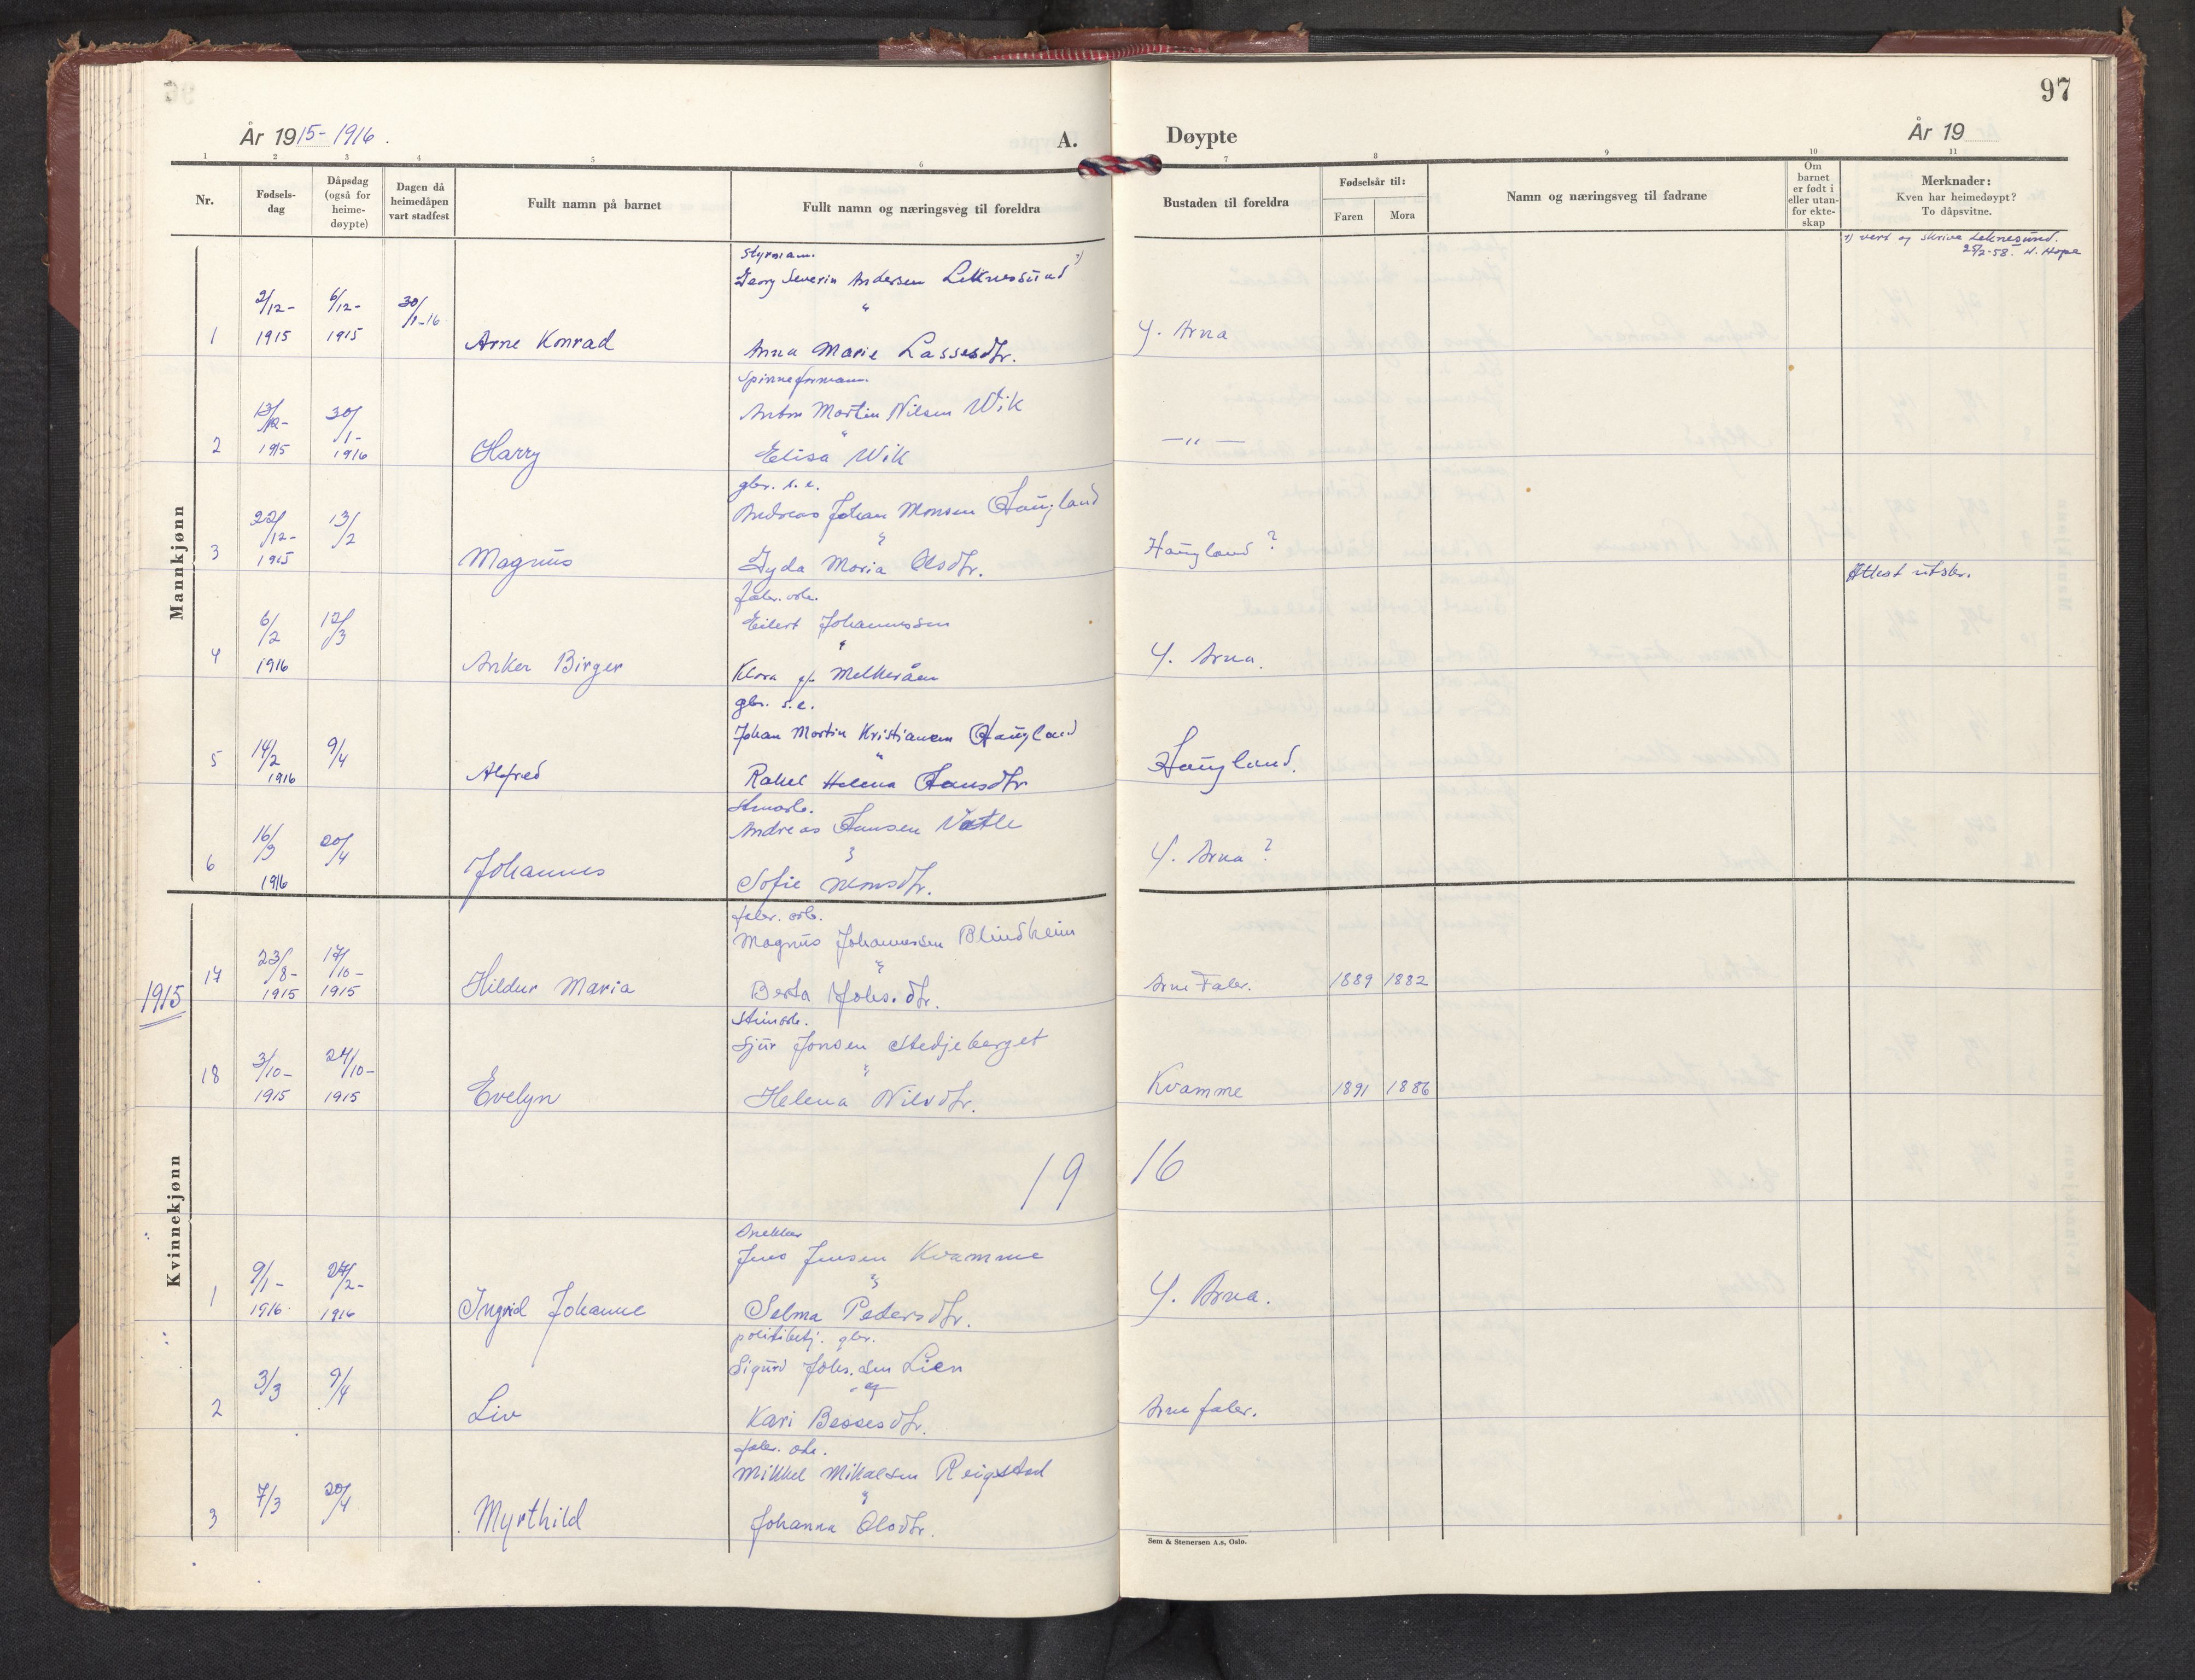 97
År 1915-1916.
A.
Døypte
År 19
1 2 3 4 5 6 7 8 9 10 11
Nr.
Fødsels-
dag
Dåpsdag
(også for
heime-
døypte)
Dagen då
heimedåpen
vart stadfest
Fullt namn på barnet
Fullt namn og næringsveg til foreldra
Bustaden til foreldra
Fødselsår til:
Faren
Mora
Namn og næringsveg til fadrane
Om
barnet
er født i
eller utan-
for ekte-
skap
Merknader:
Kven har heimedøypt?
To dåpsvitne.
Mannkjønn
1) vert og skrive Leknesund.
25/2-58. H. Hope
Styrmann.
Georg Severin Andersen Leknessund 1)
"
1 2/12- 1915 6/12- 1915 30/1-16 Arne Konrad Anna Marie Lassesdtr. Y. Arna
Spinneformann.
Anton Martin Nilsen Wik
"
2 13/12- 1915 30/1- 1916 Harry Elisa Wik — " —
gbr. s.e.
Andreas Johan Monsen Haugland
"
3 22/12- 1915 13/2 Magnus Gyda Maria Olsdtr. Haugland ?
Attest utskr.
fabr. arb.
Eilert Johannessen
"
4 6/2 1916 12/3 Anker Birger Klara f. Melkeråen Y. Arna.
gbr. s.e.
Johan Martin Kristiansen Haugland
"
5 14/2 1916 9/4 Alfred Rakel Helena Hansdtr Haugland.
Stenarb.
Andreas Hansen Vatle
"
6 16/3 1916 20/4 Johannes Sofie Monsdtr. Y. Arna ?
Kvinnekjønn
1915
fabr. arb.
Magnus Johannessen Blindheim
"
17 23/8- 1915 17/10- 1915 Hildur Maria Berta Johs.dtr. Arne Fabr. 1889 1882
Stinarb.
Sjur Jonsen Stedjeberget
"
18 3/10- 1915 24/10- 1915 Evelyn Helena Nilsdtr. Kvamme 1891 1886
19 16
Snekker
Jens Jensen Kvamme
"
1 9/1- 1916 27/2- 1916 Ingrid Johanne Selma Petersdtr. Y. Arna.
politibetj. gbr.
Sigurd Johs.sen Lien
og
2 3/3 9/4 Liv Kari Bessesdtr. Arne fabr.
fabr. arb.
Mikkel Mikalsen Reigstad
"
3 7/3 20/4 Myrthild Johanna Olsdtr.
Sem & Stenersen A.s, Oslo.